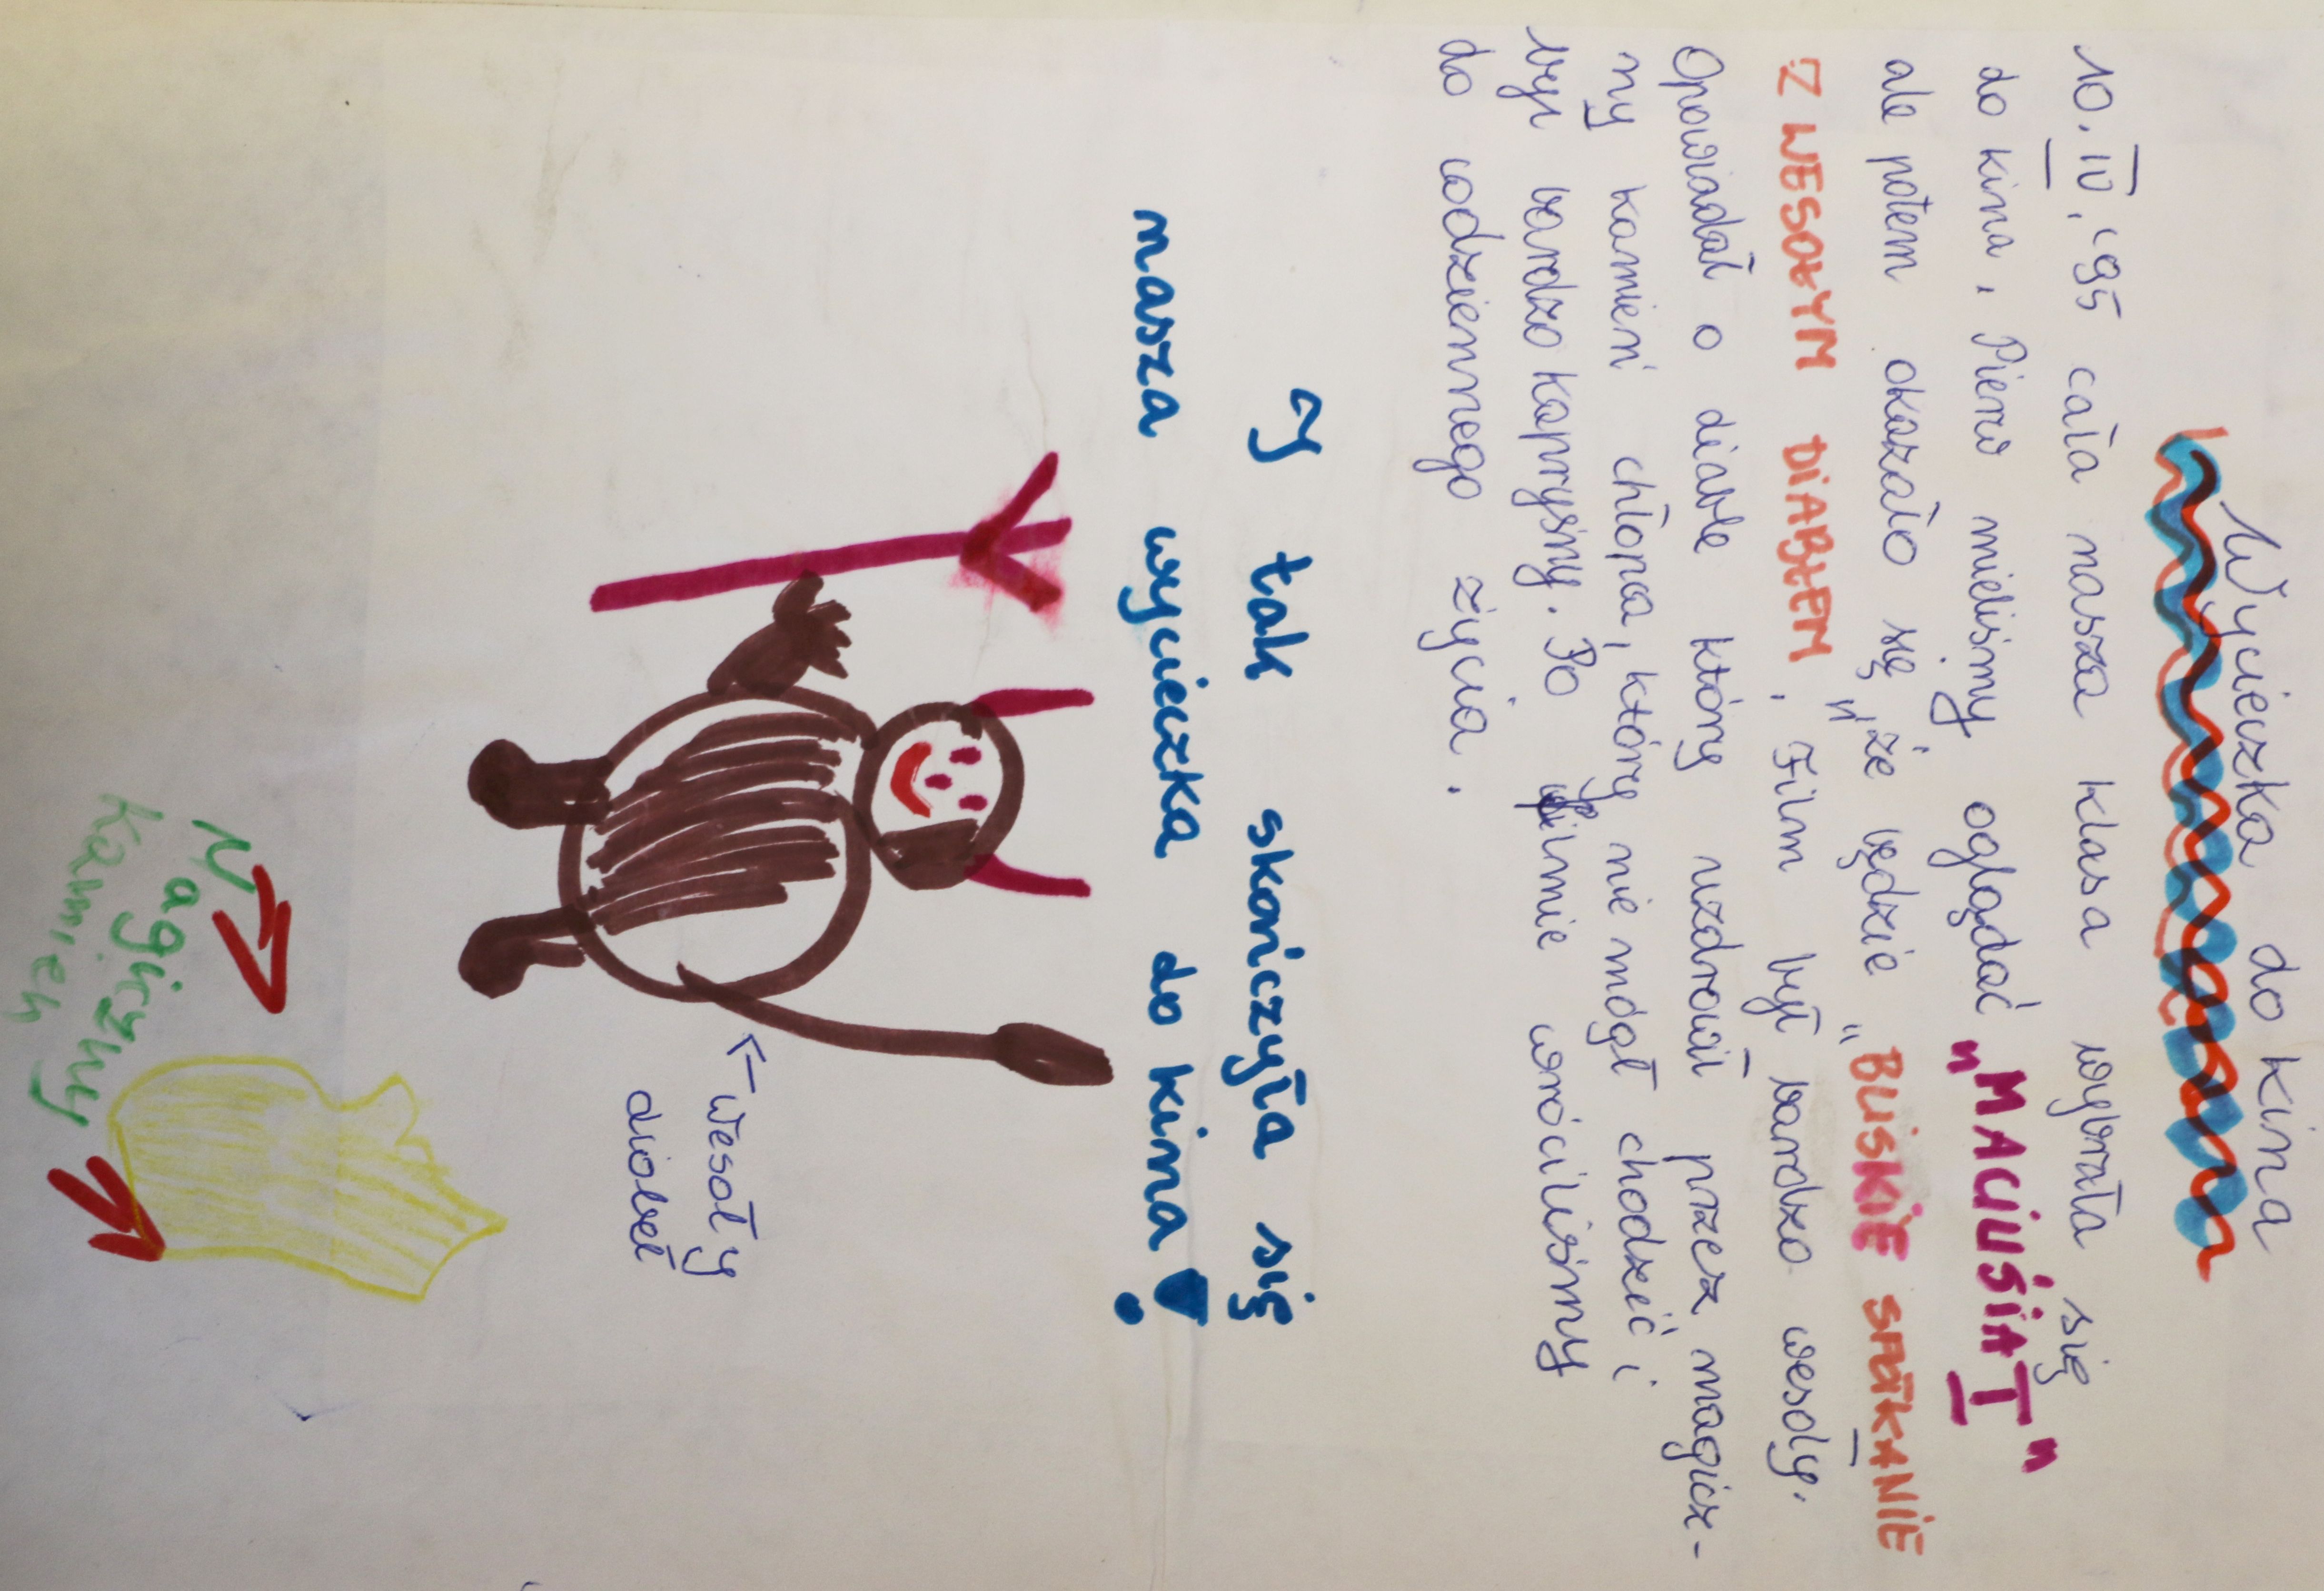 Wycieczka do kina
10.IV.'95 cała nasza klasa wybrała się
do kina. Pierw mieliśmy oglądać "MACIUSIA I"
ale potem okazało się, że będzie "BLISKIE SPOTKANIE
Z WESOŁYM DIABŁEM". Film był bardzo wesoły.
Opowiadał o diable który uzdrowił przez magicz-
ny kamień chłopca, który nie mógł chodzić i
był bardzo kapryśny. Po filmie wróciliśmy
do codziennego życia.
I tak skończyła się
nasza wycieczka do kina!
← wesoły
diabeł
Magiczny
kamień